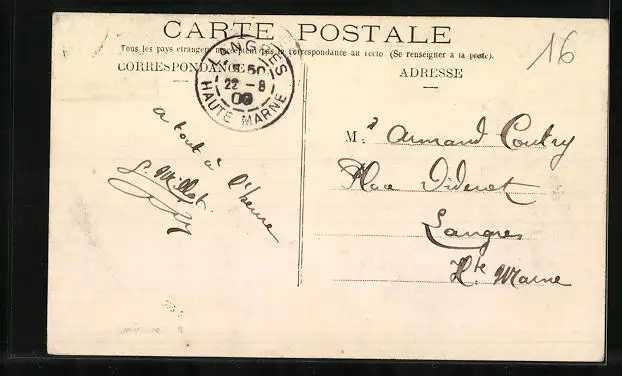 CARTE POSTALE
Tous les pays etrangers n'acceptent pas la correspondance au recto (Se renseigner a la poste).
CORRESPONDANCE
ADRESSE
16
LANGRES
22 - 8
09
HAUTE MARNE
a tout à l'heure
M. Armand Coutry
Place Diderot
Langres
Hte Marne